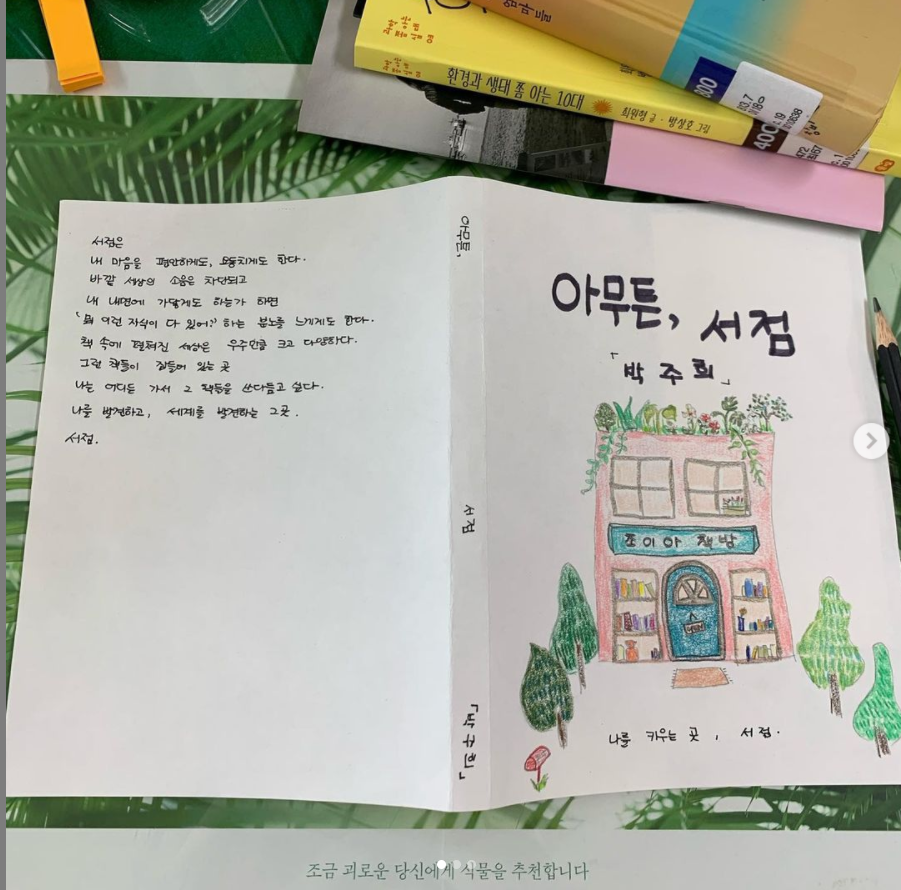 환경과 생태 쫌 아는 10대
최원형 글 · 방상호 그림
400
서점은
내 마음을 평안하게도, 요동치게도 한다.
바깥 세상의 소음은 차단되고
내 내면에 가닿게도 하는가 하면
'뭐 이런 자식이 다 있어?' 하는 분노를 느끼게도 한다.
책 속에 펼쳐진 세상은 우주만큼 크고 다양하다.
그런 책들이 잠들어 있는 곳
나는 어디든 가서 그 책등을 쓰다듬고 싶다.
나를 발견하고, 세계를 발견하는 그곳.
서점.
아무튼,
서점
「박주희」
아무튼, 서점
「박주희」
조이아 책방
나를 키우는 곳, 서점.
조금 괴로운 당신에게 식물을 추천합니다